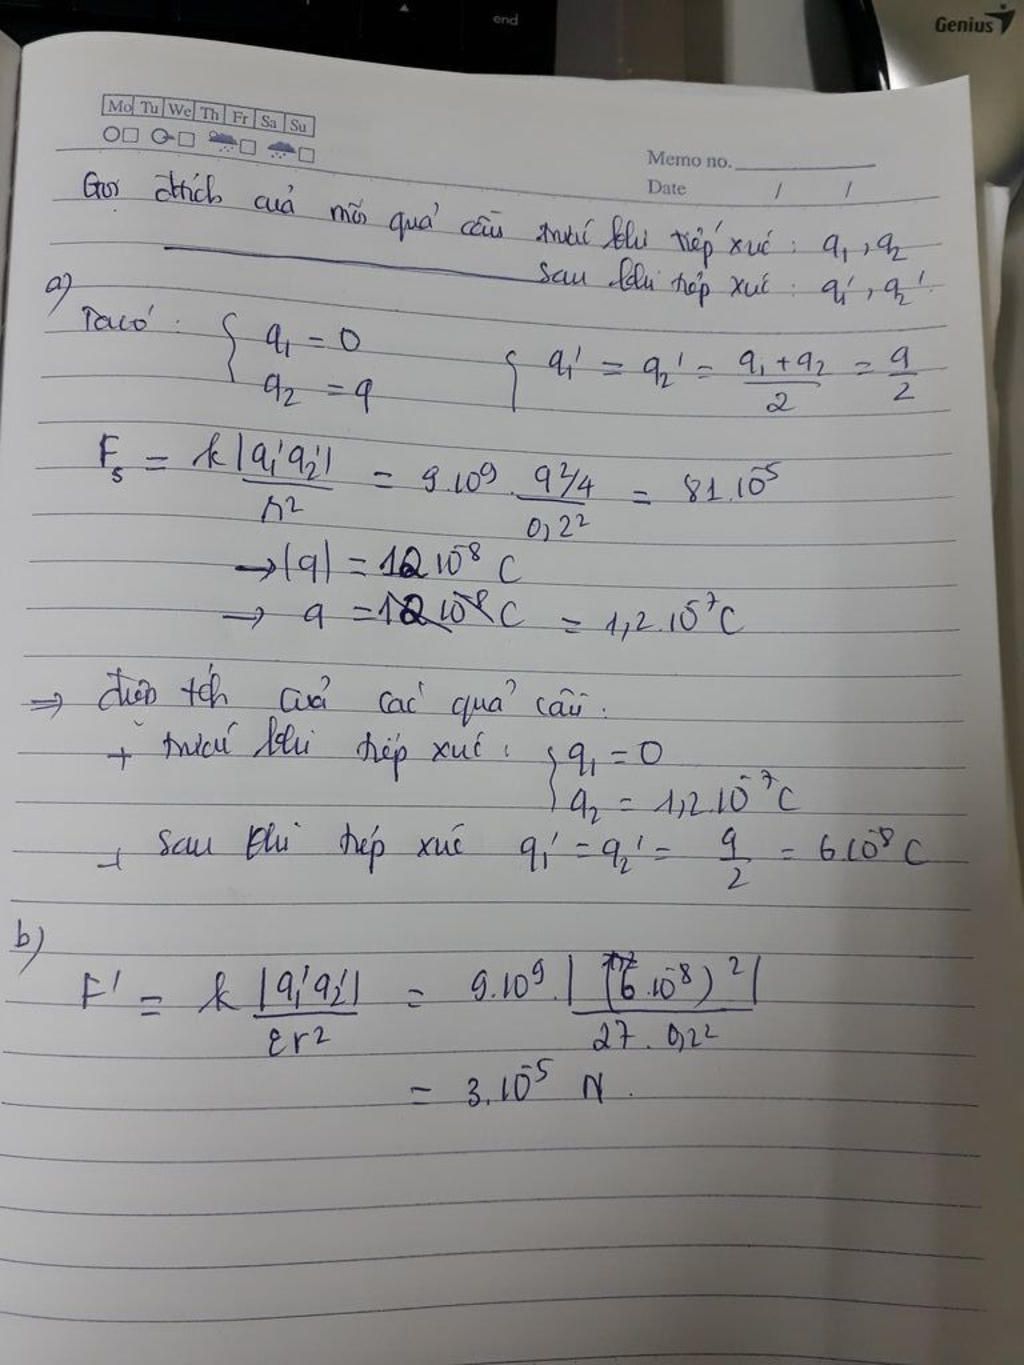 end
Genius
Mo Tu We Th Fr Sa Su
Memo no.
Date / /
Gọi đtích của mỗi quả cầu trước khi tiếp xúc : q₁, q₂
sau khi tiếp xúc : q₁', q₂'
a)
Ta có : { q₁ = 0
q₂ = q
{ q₁' = q₂' = (q₁ + q₂)/2 = q/2
Fₛ = k|q₁'q₂'|/r² = 9.10⁹ . (q²/4)/0,2² = 81.10⁻⁵
→ |q| = 12 10⁻⁸ C
→ q = 12 10⁻⁸ C = 1,2.10⁻⁷ C
⇒ điện tích của các quả cầu :
+ trước khi tiếp xúc : { q₁ = 0
q₂ = 1,2.10⁻⁷ C
+ sau khi tiếp xúc q₁' = q₂' = q/2 = 6.10⁻⁸ C
b)
F' = k |q₁'q₂'|/εr² = 9.10⁹ . |(6.10⁻⁸)²|/27 . 0,2²
= 3.10⁻⁵ N.